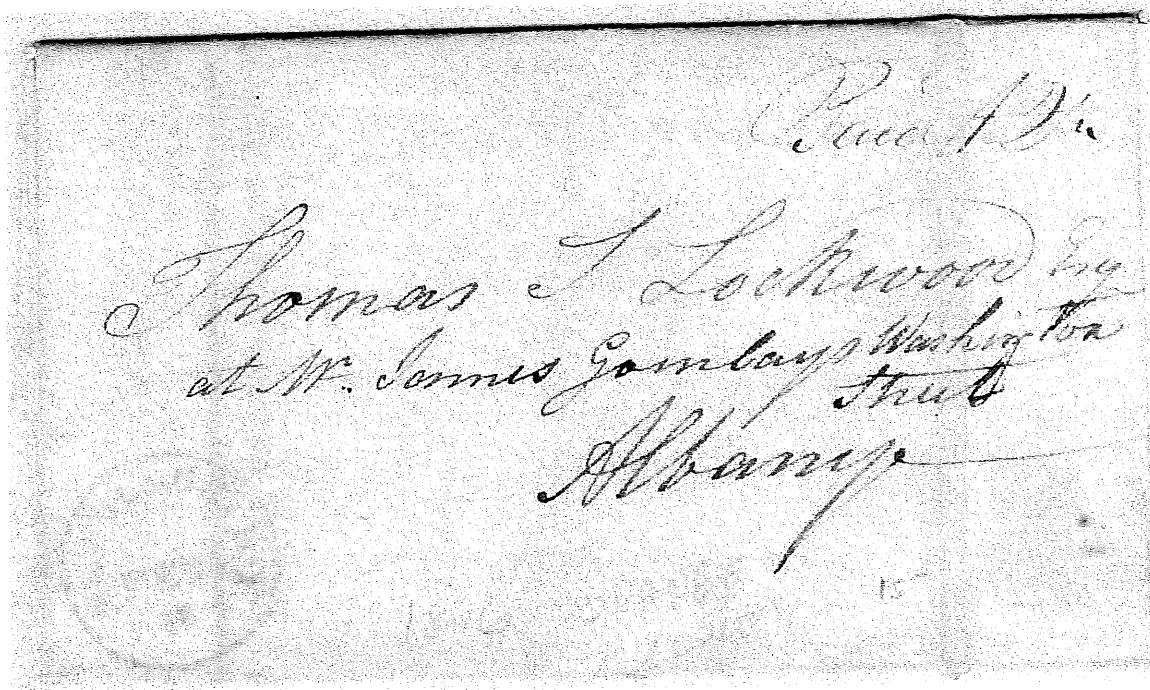 Paid
Thomas S Lockwood Esq
at Mr. James Gomlays Washington
Street
Albany
15